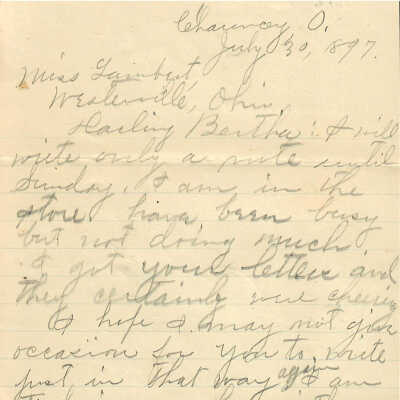 Chauncey, O.
July 30, 1897.
Miss Lambert,
Westerville, Ohio,
Darling Bertha: I will
write only a note until
Sunday. I am in the
store have been busy
but not doing much.
I got your letter and
they certainly were
I hope I may not give
occasion for you to write
just in that way again I am